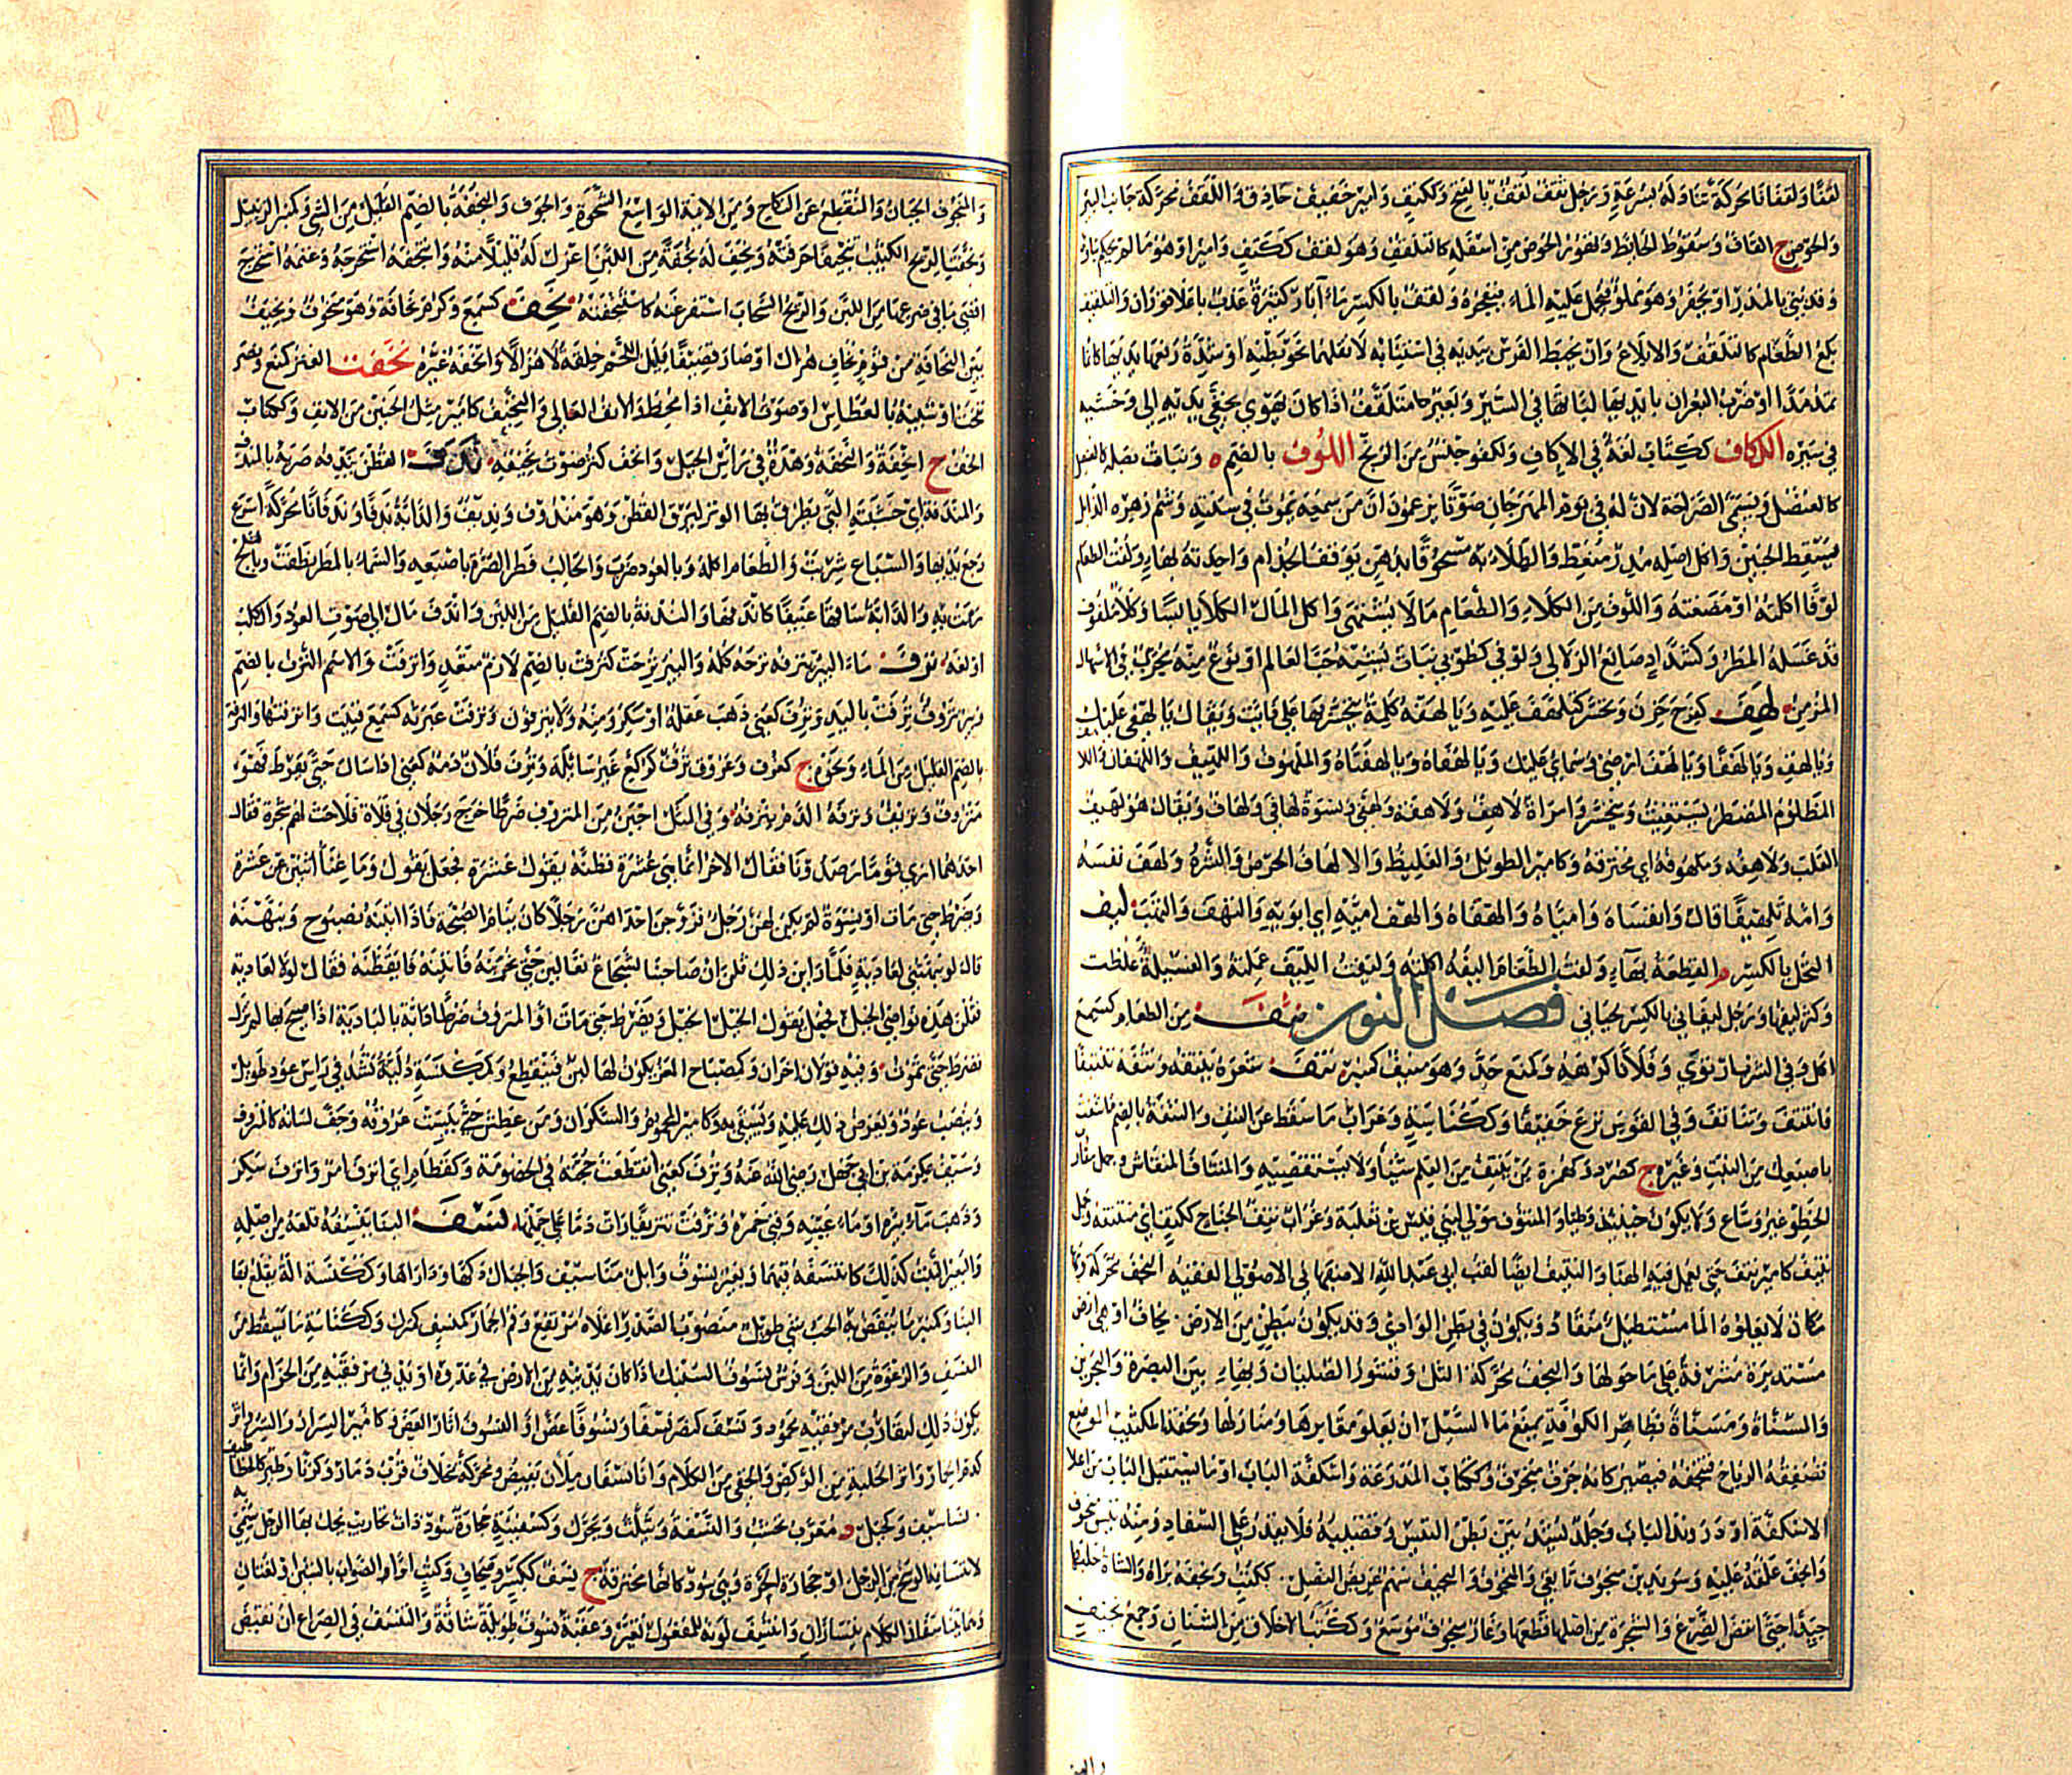 لقفا ولقفانا محركة تناوله بسرعة ورجل ثقف لقف بالفتح وككتف وامير خفيف حاذق واللقف محركة جانب البئر
والحوض ج القاف وسقوط الحائط ولقف الحوض من اسفله كالتلقف وهو لقف ككتف وامير او هو ما لم يحكم بناؤه
وقد بني بالمدر او يحفر وهو مملوء فيحمل عليه الماء فيفجره ولقف بالكسر ماء آبار كثيرة عذب باعلا قوران والتلقيف
بلع الطعام كالتلقف والابلاغ وان يخبط الفرس بيديه في استنانه لا يقلهما نحو بطنه او شدة رفعها يديها كانما
تمد مدا او ضرب البعران بايديها لباتها في السير وبعير متلقف اذا كان يهوي بخفي يديه الى وحشيه
في سيره اللكاف ككتاب لغة في الاكاف ولكفو جنس من الزنج اللوف بالضم ة ونبات له بصلة
كالعنصل ويسمى الصراخة لان له في يوم المهرجان صوتا يزعمون ان من سمعه يموت في سنته وشم زهره الذابل
يسقط الجنين واكل اصله مدر منعظ والطلاء به مسحوقا بدهن يوقف الجذام واحدته بهاء ولفت الطعام
لوفا اكلته او مضغته واللوف من الكلاء والطعام ما لا يشتهى واكل المال الكلا يابسا وكلا ملوف
قد غسله المطر وكشداد صانع الزلالي ولوفى كطوبى نبات يشبه حي العالم او نوع منه يجرب في الاسهال
المزمن لهف كفرح حزن وتحسر كتلهف عليه ويا لهفه كلمة يتحسر بها على فائت ويقال يا لهفي عليك
ويا لهف ويا لهفا ويا لهف ارضي وسمائي عليك ويا لهفاه ويا لهفتاه والملهوف واللهيف واللهفان واللاهف
المظلوم المضطر يستغيث ويتحسر وامراة لاهف ولاهفة ولهفى ونسوة لهافى ولهاف ويقال هو لهيف
القلب ولاهفه وملهوفه اي محترقه وكامير الطويل والغليظ والالهاف الحرص والشره ولهف نفسه
وامه تلهيفا قال وانفساه وامياه والهفاه والهف اميه اي ابويه والتهف والتهب ليف
النخل بالكسر م والقطعة بهاء ولفت الطعام اليفه اكلته وليفت الليف عملته والفسيلة غلظت
وكثر ليفها ورجل ليفاني بالكسر لحياني فصل النون نئف من الطعام كسمع
اكل وفي الشرب ارتوى وفلانا كرهه وكمنع جد وهو منئف كمنبر نتف شعره ينتفه ونتفه تنتيفا
فانتتف وتناتف وفي القوس نزع خفيفا وككناسة وغراب ما سقط عن النتف والنتفة بالضم ما نتفت
باصبعك من النبت وغيره ج كصرد وكهمزة من ينتف من العلم شيئا ولا يستقصيه والمنتاف المنقاش وجمل مقارب
الخطو غير وساع ولا يكون حينئذ وطيا والمنتوف مولى لبني قيس بن ثعلبة وغراب نتف الجناح ككتف اي منتتفه وجمل
نتيف كامير نتف حتى يعمل فيه الهناء والنتيف ايضا لقب ابي عبد الله الاصفهاني الاصولي الفقيه النجف محركة وبهاء
مكان لا يعلوه الما مستطيل منقاد ويكون في بطن الوادي وقد يكون ببطن من الارض ج نجاف او هي ارض
مستديرة مشرفة على ما حولها والنجف محركة التل وقشور الصليان وبهاء ع بين البصرة والبحرين
والمسناة ومسناة بظاهر الكوفة يمنع ما السيل ان يعلو مقابرها ومنازلها ونجفة الكثيب الموضع
تصفقه الرياح فتنجفه فيصير كانه جرف منجرف وككتاب المدرعة واسكفة الباب او ما يستقبل الباب من اعلا
الاسكفة او دروند الباب وجلد يشد بين بطن التيس وقضيبه فلا يقدر على السفاد ومنه تيس منجوف
وانجف علقه عليه وسويد بن منجوف تابعي والمنجوف والنجيف سهم عريض النصل ج ككتب ونجفه براه والشاة حلبها
جيدا حتى انفض الضرع والشجرة من اصلها قطعها وغار منجوف موسع وككتب الاخلاق من الشنان وجمع نجيف
والمنجوف الجبان والمنقطع عن النكاح ومن الانية الواسع الشحوة والجوف والنجفة بالضم القليل من الشي وكمنبر الزبيل
ونجفت الريح الكثيب تنجيفا جرفته ونجف له نجفة من اللبن اعزل له قليلا منه وانتجفه استخرجه وغنمه استخرج
اقصى ما في ضرعها من اللبن والريح السحاب استفرغته كاستنجفته نحف كسمع وكرم نحافة وهو منحوف ونحيف
بين النحافة من قوم نحاف هزل او صار قضيفا قليل اللحم خلقة لا هزالا وانحفه غيره نخفت العنز كمنع ونصر
نخفا وشبيه بالعطاس او صوت الانف اذا مخط والانف العالي والنخيف كامير مثل الخنين من الانف وككتاب
الخف ج انخفة والنخفة وهدة في راس الجبل وانخف كثر صوت نخيفه ندف القطن يندفه ضربه بالمندف
والمندفة اي خشبته التي يطرق بها الوتر ليرق القطن وهو مندوف ونديف والدابة ندفا وندفانا محركة اسرع
رجع يديها والسباع شربت والطعام اكله وبالعود ضرب والحالب فطر الضرة باصبعه والسماء بالمطر نطفت وبالثلج
رمت به والدابة ساقها عنيفا كاندفها والندفة بالضم القليل من اللبن واندف مال الى صوت العود والكلب
اولغه نزف ماء البئر ينزفه نزحه كله والبئر نزحت كنزفت بالضم لازم متعد وانزفت والاسم النزف بالضم
وبئر نزوف نزفت باليد ونزف كعني ذهب عقله او سكر ومنه ولا ينزفون ونزفت عبرته كسمع فنيت وانزفتها والنزفة
بالضم القليل من الماء ونحوه ج كغرف وعروق نزف كركع غير سائلة ونزف فلان دمه كعني اذا سال حتى يفرط فهو
منزوف ونزيف ونزفه الدم ينزفه وفي المثل اجبن من المنزوف ضرطا خرج رجلان في فلاة فلاحت لهم شجرة فقال
احدهما ارى قوما رصدونا فقال الاخر انما هي عشرة فظنه يقول عشرة فجعل يقول وما غنأ اثنين عن عشرة
وضرط حتى مات او نسوة لم يكن لهن رجل فزوجن احداهن رجلا كان ينام الصبحة فاذا اتينه بصبوح ونبهنه
قال لو نبهتنني لعادية فلما راين ذلك قلن ان صاحبنا لشجاع تعالين حتى نجربه فاتينه فايقظنه فقال لولا لعادية
فقلن هذه نواصي الخيل فجعل يقول الخيل الخيل ويضرط حتى مات او المنزوف ضرطا دابة بالبادية اذا صيح بها لم تزل
تضرط حتى تموت وفيه قولان اخران وكمصباح المعز يكون لها لبن فينقطع وكمكنسة دلية تشد في راس عود طويل
وينصب عود ويعرض ذلك عليه ويستقى به وكامير المحموم والسكران ومن عطش حتى يبست عروقه وجف لسانه كالمنزوف
وسيف عكرمة بن ابي جهل رضي الله عنه ونزف كعني انقطعت حجته في الخصومة وكقطام اي انزف امر وانزف سكر
وذهب ماء بئره او ماء عينه وفني خمره ونزفت تنزيفا رات دما على حملها نسف البنا ينسفه قلعه من اصله
والبعير النبت كذلك كانتسفه فيهما وبعير نسوف وابل مناسيف والجبال دكها وذراها وكمكنسة الة يقلع بها
البنا وكمنبر ما ينفض به الحب شي طويل منصوب الصدر اعلاه مرتفع وفم الحمار كمنسف كمنزل وككناسة ما يسقط من
النسف والرغوة من اللبن وفرس نسوف السنبك اذا كان يدنيه من الارض في عدوه او يدني مرفقيه من الحزام وانما
يكون ذلك لتقارب مرفقيه محمود ونسف كنصر نسفا ونسوفا عض او النسوف اثار العض وكامير السرار والسر واثر
كدم الحمار واثر الحلبة من الركض والخفي من الكلام وانا نسفان ملآن يفيض ومحركة
لانتساف الوسخ من الرجل او حجارة الحرة وهي سود كانها محترقة